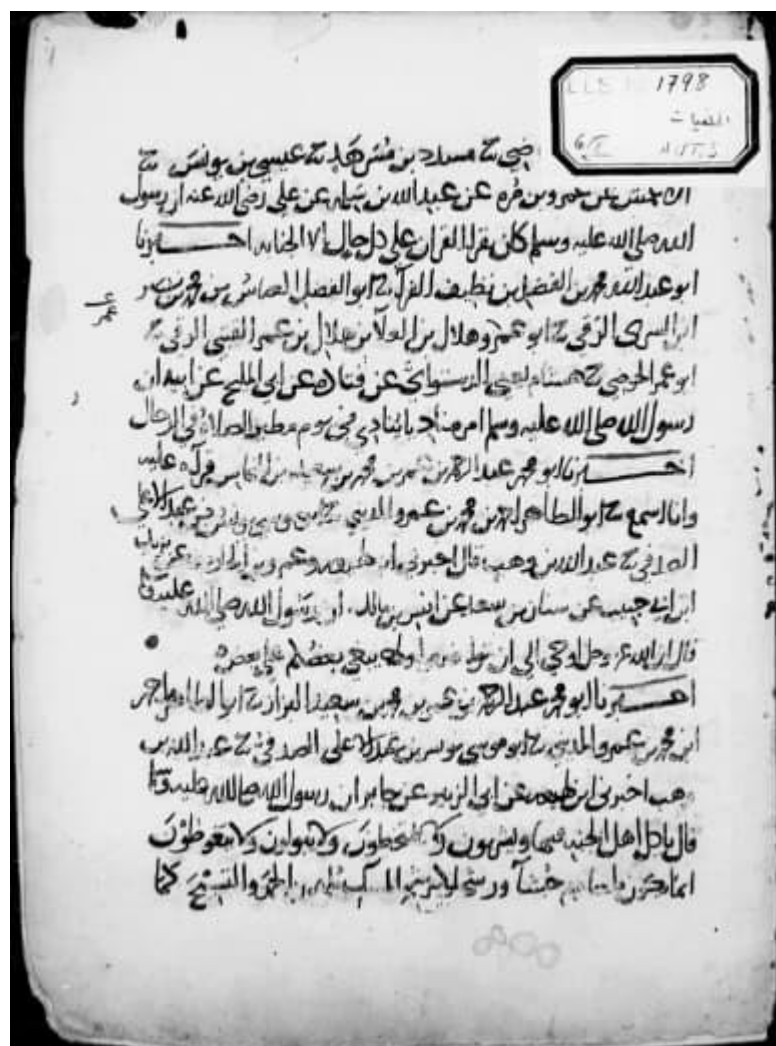 1798
الخلعيات
اضي ثنا مسدد بن مسرهد ثنا عيسى بن يونس ثنا
الاعمش عن عمرو بن مره عن عبد الله بن سلمه عن علي رضي الله عنه ان رسول
الله صلى الله عليه وسلم كان يقرا القران على كل حال الا الجنابه اخبرنا
ابو عبد الله محمد بن الفضل بن نظيف الفرآ ثنا ابو الفضل العباس بن محمد بن نصر
ابن السري الرقي ثنا ابو عمرو هلال بن العلآ بن هلال بن عمر القتبي الرقي ثنا
ابو عمر الحوضي ثنا هشام يعني الدستوايي عن قتاده عن ابي المليح عن ابيه ان
رسول الله صلى الله عليه وسلم امر مناديا ينادي في يوم مطير الصلاة في الرحال
اخبرنا ابو محمد عبد الرحمن بن عمر بن محمد بن سعيد بن النحاس قرآة عليه
وانا اسمع ثنا ابو الطاهر احمد بن محمد بن عمرو المديني ثنا ابو موسى يونس بن عبد الاعلى
الصدفي ثنا عبد الله بن وهب قال اخبرني ابن لهيعه وعمرو بن الحارث عن يزيد
ابن ابي حبيب عن سنان بن سعد عن انس بن مالك ان رسول الله صلى الله عليه وسلم
قال ان الله عز وجل اوحى الي ان تواضعوا ولا يبغي بعضكم على بعض
اخبرنا ابو محمد عبد الرحمن بن عمر بن محمد بن سعيد البزاز ثنا ابو الطاهر احمد
ابن محمد بن عمرو المديني ثنا ابو موسى يونس بن عبد الاعلى الصدفي ثنا عبد الله بن
وهب اخبرني ابن لهيعه عن ابي الزبير عن جابر ان رسول الله صلى الله عليه وسلم
قال ياكل اهل الجنه فيها ويشربون ولا يتمخطون ولا يبولون ولا يتغوطون
انما يكون طعامهم جشآ ورشح كرشح المسك يلهمون الحمد والتسبيح كما